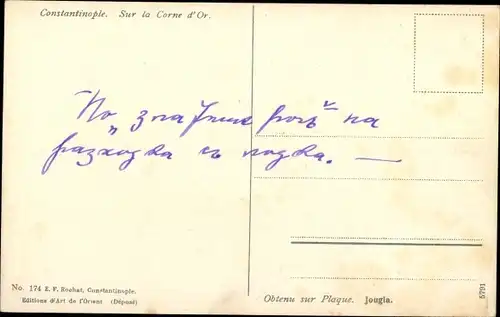 Constantinople. Sur la Corne d'Or.
По „
на
разходка с лодка. —
No. 174 E. F. Rochat, Constantinople.
Editions d'Art de l'Orient (Déposé)
Obtenu sur Plaque. Jougla.
5791